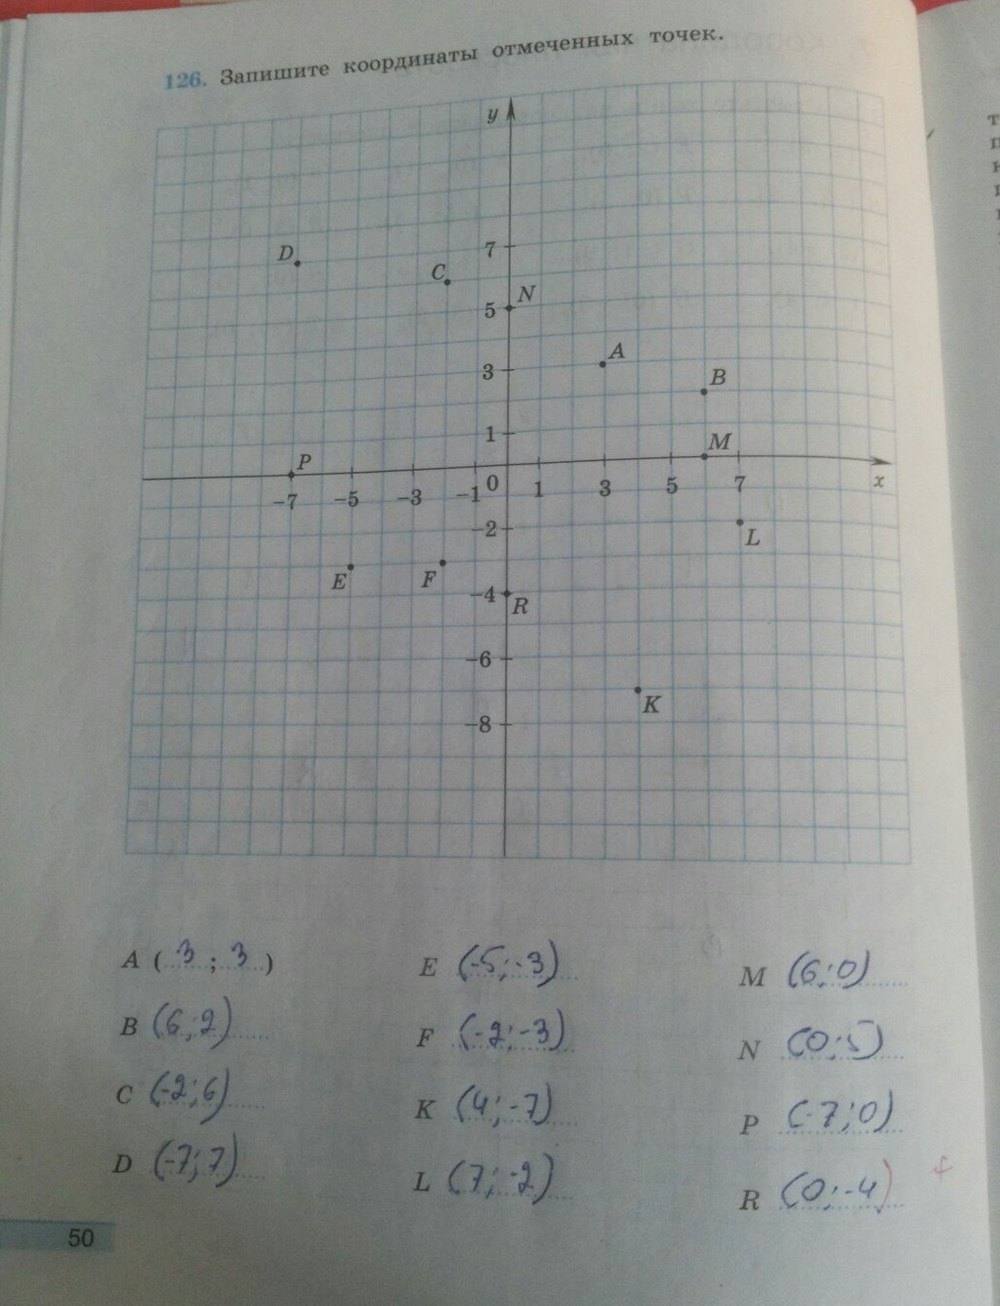 126. Запишите координаты отмеченных точек.
y
D
7
C
N
5
A
3
B
1
M
P
0
-7 -5 -3 -1 1 3 5 7 x
-2
L
E F
-4
R
-6
K
-8
A (3 ; 3) E (-5; -3) M (6; 0)
B (6; 2) F (-2; -3) N (0; 5)
C (-2; 6) K (4; -7) P (-7; 0)
D (-7; 7) L (7; -2) R (0; -4)
50